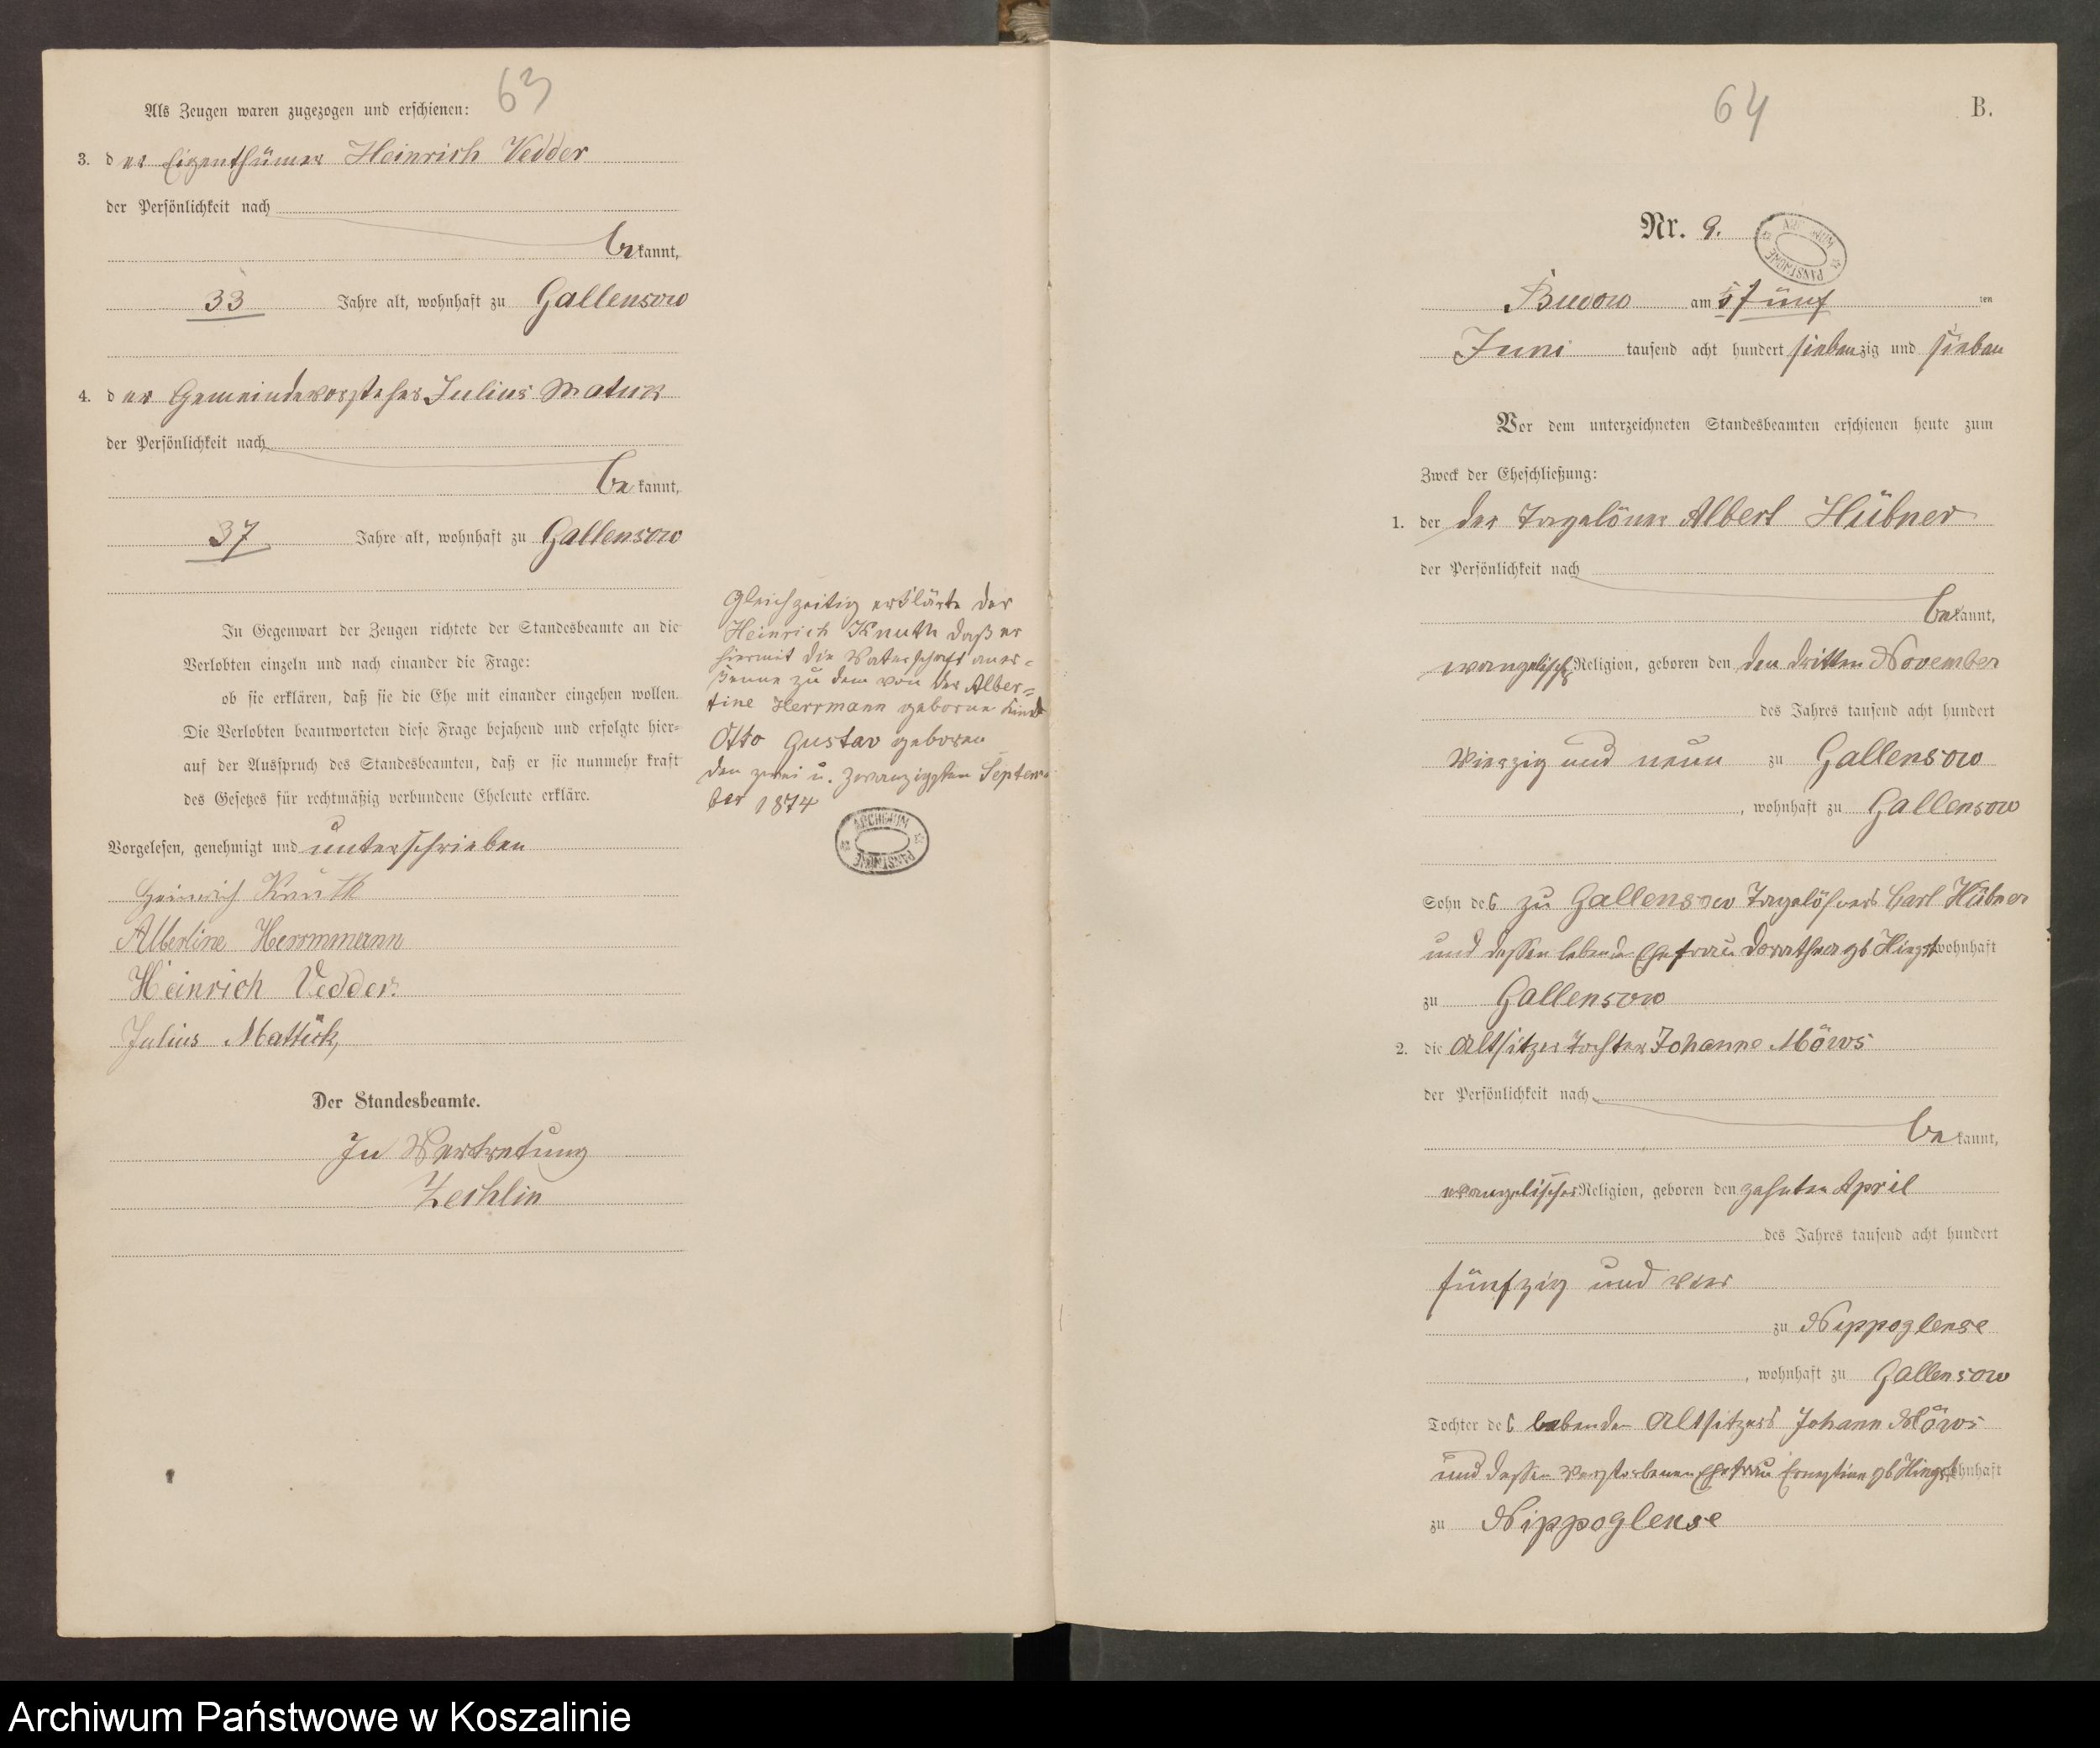 63
Als Zeugen waren zugezogen und erschienen:
3. der Eigenthümer Heinrich Vedder
der Persönlichkeit nach
bekannt,
33 Jahre alt, wohnhaft zu Gallensow
4. der Gemeindevorsteher Julius
der Persönlichkeit nach
bekannt,
37 Jahre alt, wohnhaft zu Gallensow
In Gegenwart der Zeugen richtete der Standesbeamte an die
Verlobten einzeln und nach einander die Frage:
ob sie erklären, daß sie die Ehe mit einander eingehen wollen.
Die Verlobten beantworteten diese Frage bejahend und erfolgte hier-
auf der Ausspruch des Standesbeamten, daß er sie nunmehr kraft
des Gesetzes für rechtmäßig verbundene Eheleute erkläre.
Vorgelesen, genehmigt und unterschrieben
Heinrich Knuth
Albertine Herrmmann
Heinrich Vedder.
Julius Mattick,
Der Standesbeamte.
In Vertretung
Zechlin
Gleichzeitig erklärte der
Heinrich Knuth daß er
hiermit die Vaterschaft aner=
kenne zu dem von der Alber=
tine Herrmann geborne Kind
Otto Gustav geboren
den zwei u. zwanzigsten Septem-
ber 1874
ARCHIWUM PAŃSTWOWE
64
B.
Nr. 9.
ARCHIWUM PAŃSTWOWE
Budow am 5 fünf ten
Juni tausend acht hundert siebenzig und sieben
Vor dem unterzeichneten Standesbeamten erschienen heute zum
Zweck der Eheschließung:
1. der der Tagelöner Albert Hübner
der Persönlichkeit nach
bekannt,
evangelischer Religion, geboren den den dritten November
des Jahres tausend acht hundert
Vierzig und neun zu Gallensow
, wohnhaft zu Gallensow
Sohn des zu Gallensow Tagelöhners Carl Hübner
und dessen lebende Ehefrau Dorathea gb Hingst wohnhaft
zu Gallensow
2. die Altsitzer Tochter Johanne Möws
der Persönlichkeit nach
bekannt,
evangelischer Religion, geboren den zehnten April
des Jahres tausend acht hundert
fünfzig und vier
zu Nippoglense
, wohnhaft zu Gallensow
Tochter des lebenden Altsitzers Johann Möws
und dessen verstorbenen Ehefrau Ernestine gb Hingst wohnhaft
zu Nippoglense
Archiwum Państwowe w Koszalinie